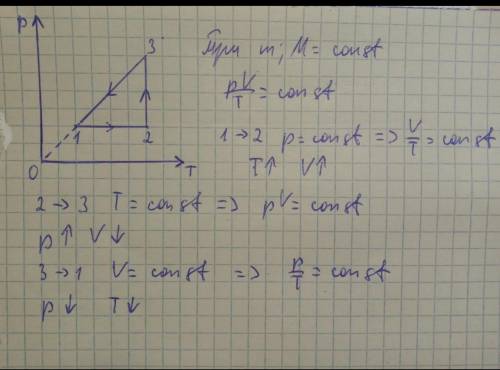 P
3
1
2
O
T
При m; M = const
pV/T = const
1→2 p = const => V/T = const
T↑ V↑
2→3 T = const => pV = const
p↑ V↓
3→1 V = const => p/T = const
p↓ T↓